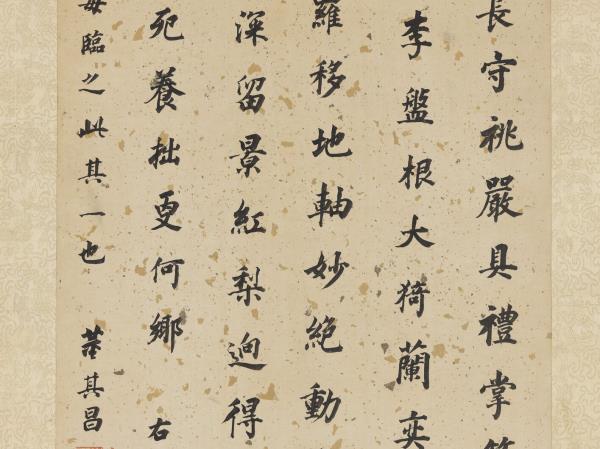 長守祧嚴具禮掌
李盤根大猗蘭奕
羅移地軸妙絕動
深留景紅梨迥得
死養拙更何鄉 右
每臨之此其一也 董其昌